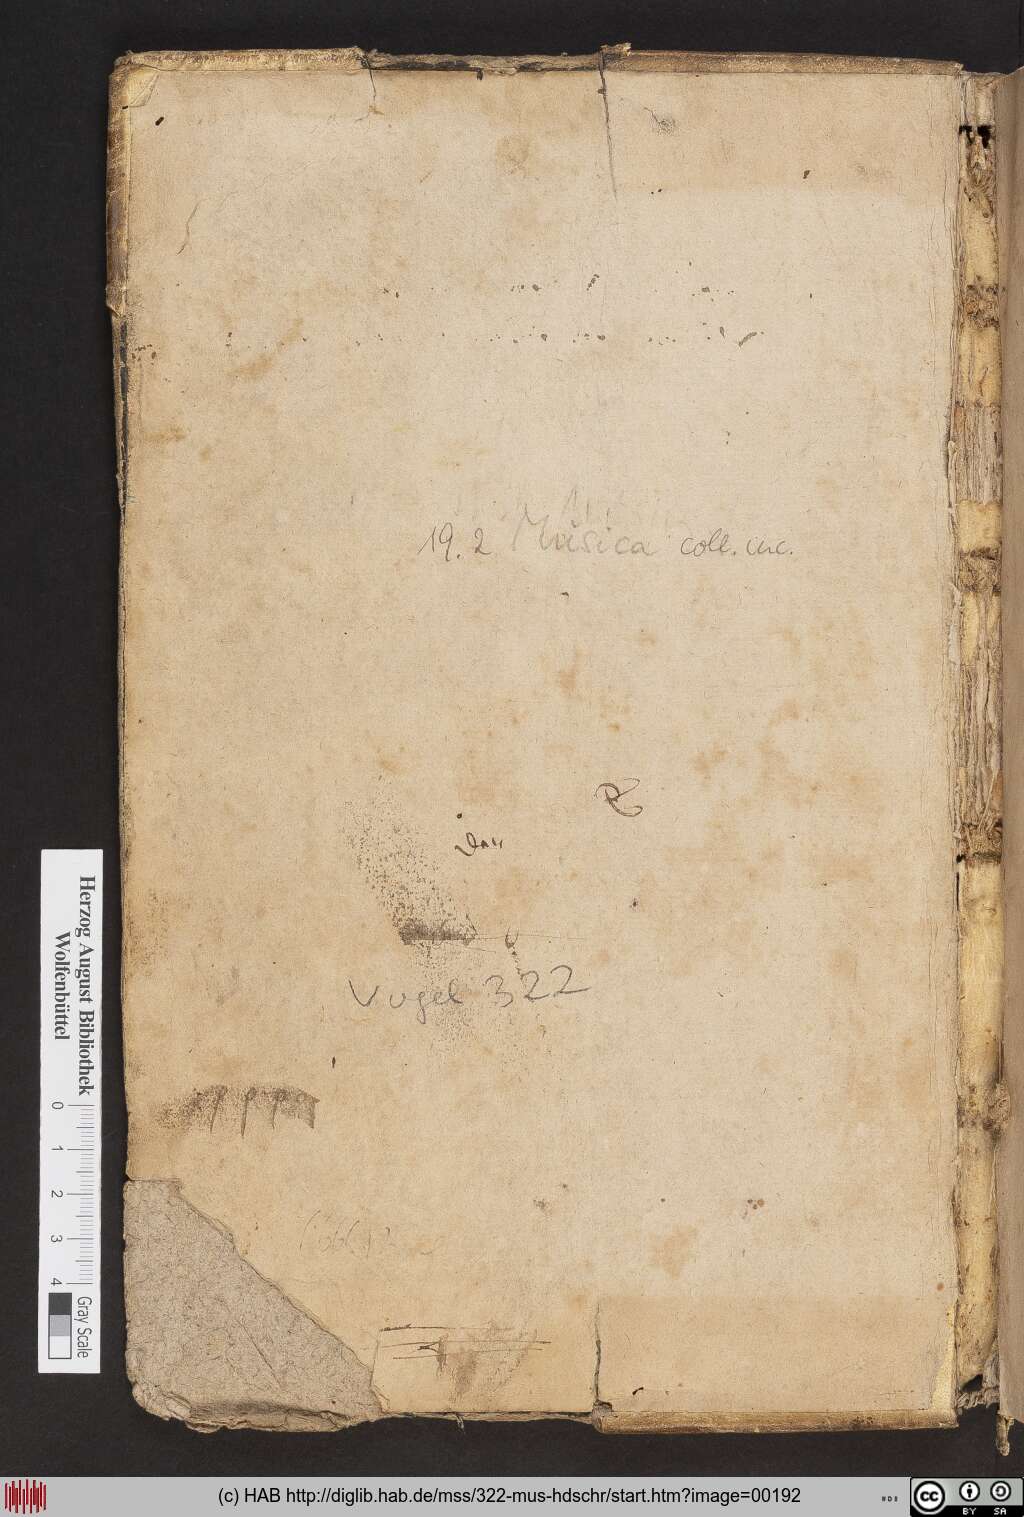 19. 2 Musica coll. inc.
Vogel 322
Herzog August Bibliothek
Wolfenbüttel
0 1 2 3 4
Gray Scale
(c) HAB http://diglib.hab.de/mss/322-mus-hdschr/start.htm?image=00192
cc BY SA